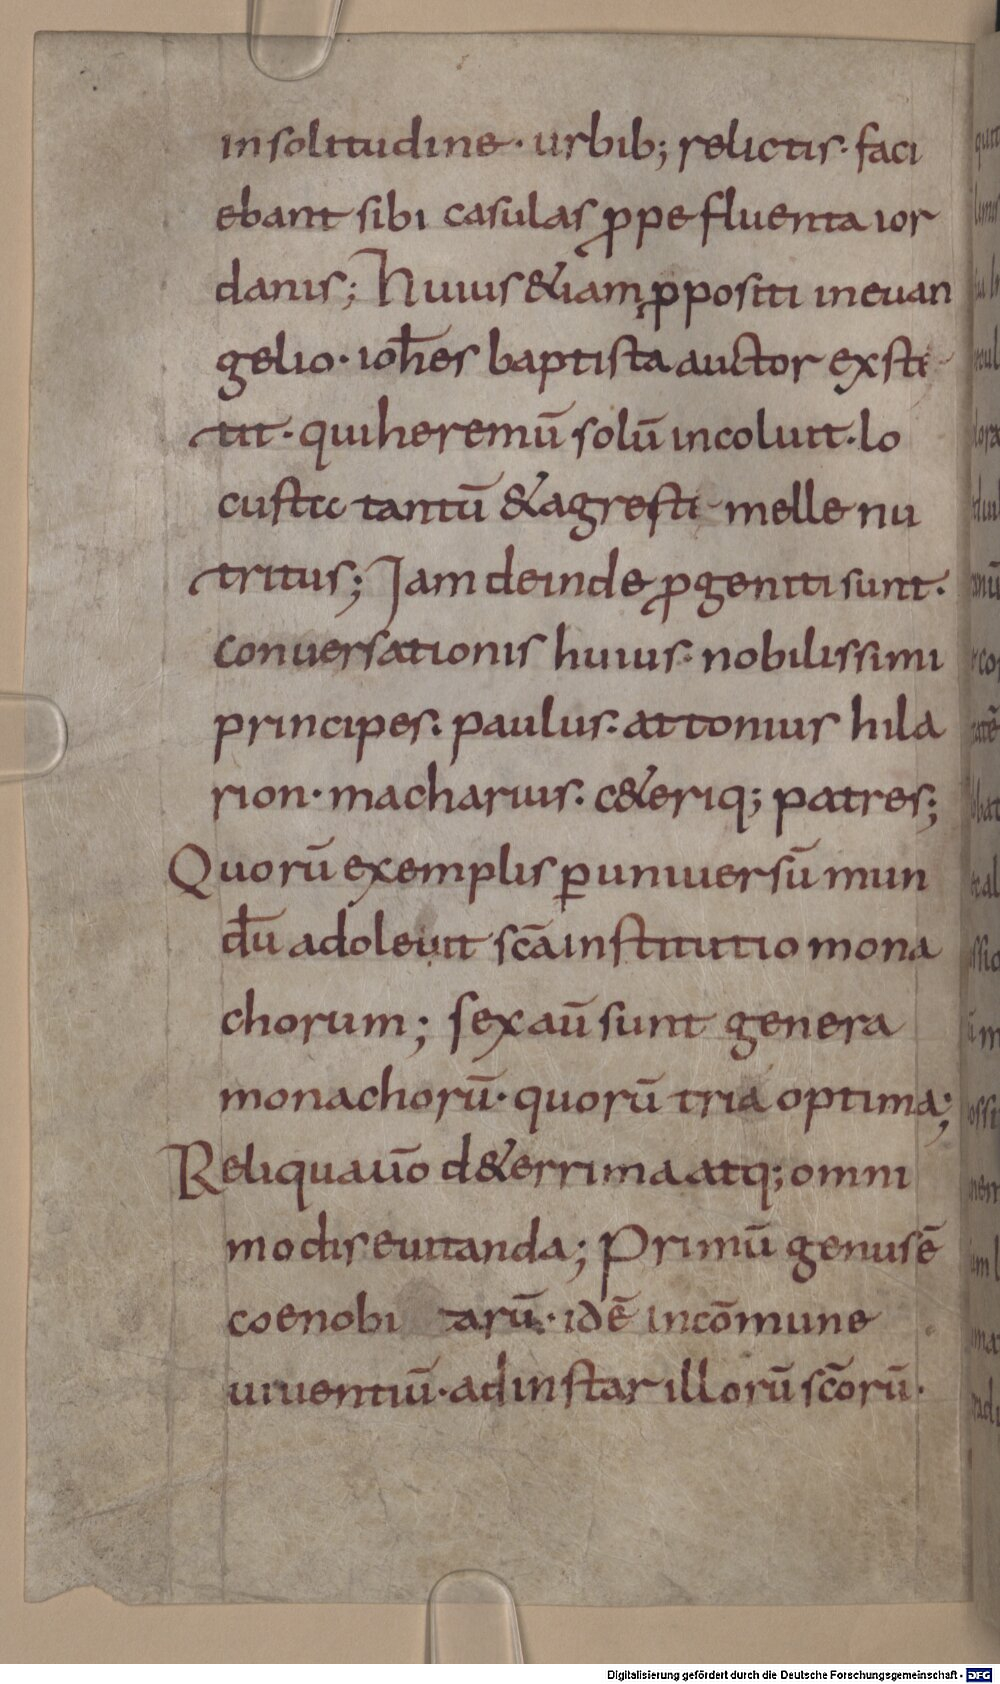 insolitudine · urbib; relictis · faci
ebant sibi casulas ꝓpe fluenta ior
danis; Huius &iam ꝓpositi ineuan
gelio · ioh̄es baptista auctor exsti
tit · quiheremū solū incoluit · lo
custis tantū &agresti melle nu
tritus; Jam deinde ꝓgeniti sunt ·
conuersationis huius · nobilissimi
principes · paulus · attonius hila
rion · macharius · c&eriq; patres;
Quorū exemplis ꝑuniuersū mun
dū adoleuit sc̄a institutio mona
chorum; sex aū sunt genera
monachorū · quorū tria optima;
Reliqua uo̅ d&errima atq; omni
modis euitanda; Primū genus ē
coenobi tarū · idē incōmune
uiuentiū · adinstar illorū sc̄orū ·
Digitalisierung gefördert durch die Deutsche Forschungsgemeinschaft · DFG